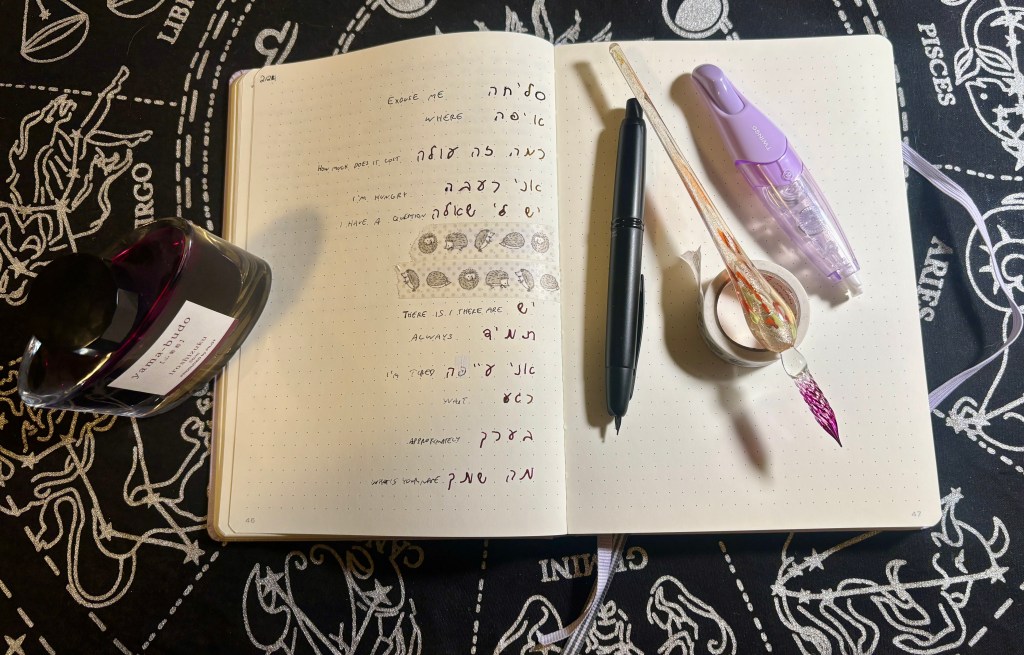 LIBRA
VIRGO
PISCES
ARIES
GEMINI
EXCUSE ME סליחה
WHERE איפה
HOW MUCH DOES IT COST כמה זה עולה
I'M HUNGRY אני רעבה
I HAVE A QUESTION יש לי שאלה
THERE IS / THERE ARE יש
ALWAYS תמיד
I'M TIRED אני עייפה
WAIT רגע
APPROXIMATELY בערך
WHAT'S YOUR NAME מה שמך
46
47
yama-budo
iroshizuku